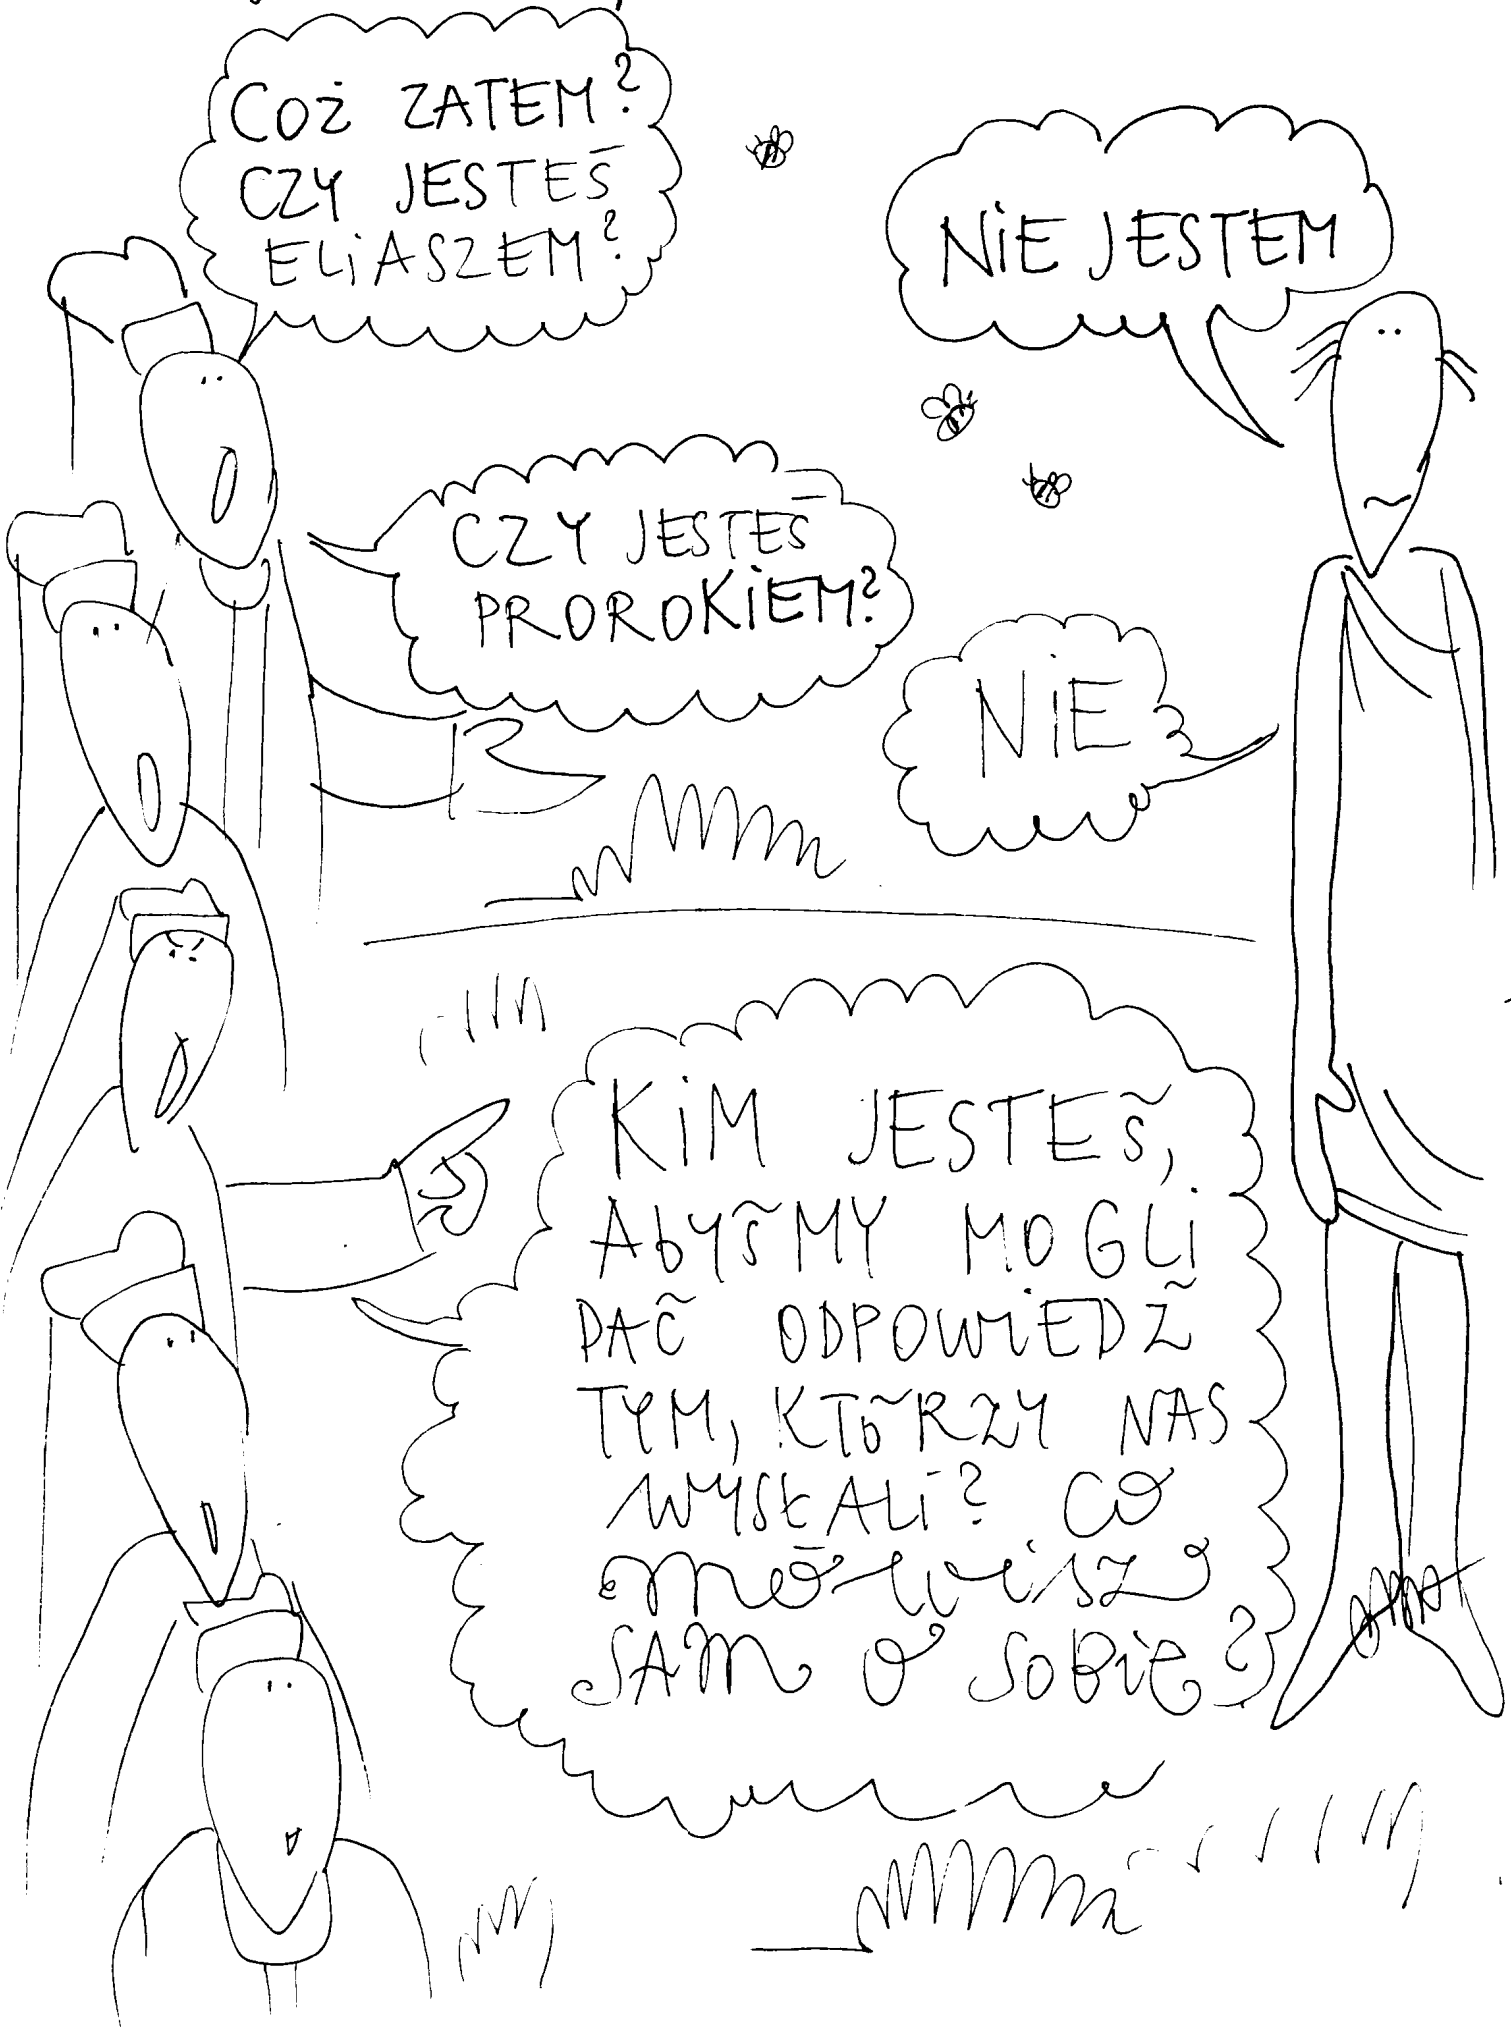 COŻ ZATEM?
CZY JESTEŚ
ELIASZEM?
NIE JESTEM
CZY JESTEŚ
PROROKIEM?
NIE
KIM JESTEŚ,
ABYŚMY MOGLI
DAĆ ODPOWIEDŹ
TYM, KTÓRZY NAS
WYSŁALI? CO
mówisz
SAM O SOBIE?